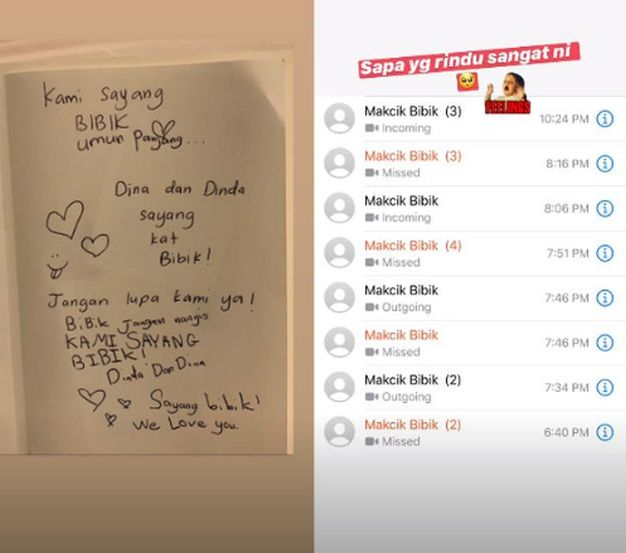 Kami sayang
BIBIK
umur panjang...
Dina dan Dinda
sayang
kat
Bibik!
Jangan lupa kami ya!
Bibik Jangan nangis
KAMI SAYANG
BIBIK!
Dinda Dan Dina
Sayang bibik!
We Love you.
Sapa yg rindu sangat ni
FEELINGS
Makcik Bibik (3)
Incoming
10:24 PM
Makcik Bibik (3)
Missed
8:16 PM
Makcik Bibik
Incoming
8:06 PM
Makcik Bibik (4)
Missed
7:51 PM
Makcik Bibik
Outgoing
7:46 PM
Makcik Bibik
Missed
7:46 PM
Makcik Bibik (2)
Outgoing
7:34 PM
Makcik Bibik (2)
Missed
6:40 PM